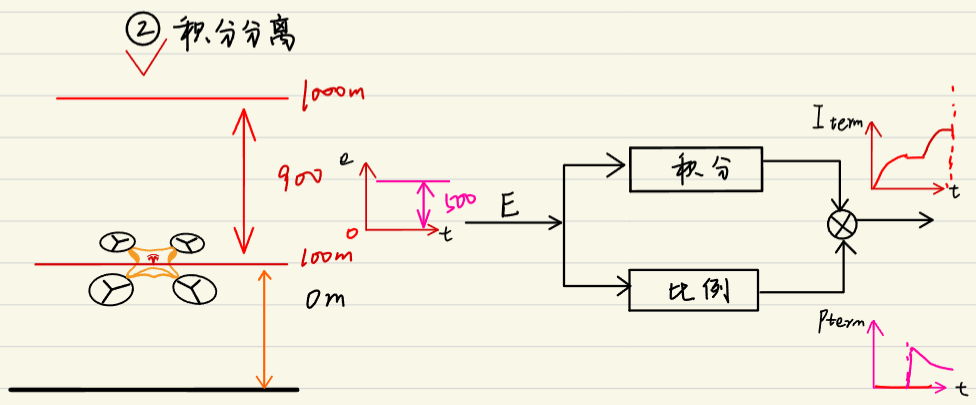 ② 积分分离
1000m
900
100m
0m
e
500
0
t
E
积分
比例
I term
t
Pterm
t